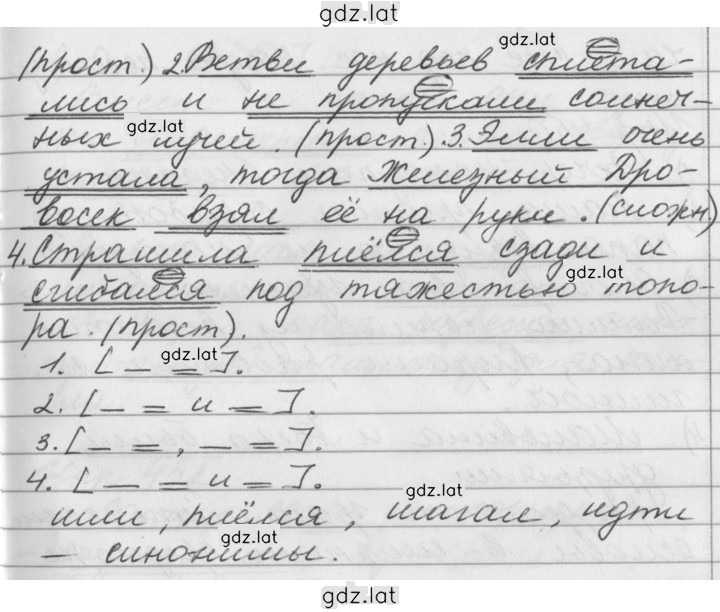 gdz.lat
(прост.) 2. Ветви деревьев сплета-
gdz.lat
лись и не пропускали солнеч-
ных лучей. (прост.). 3. Элли очень
gdz.lat
устала, тогда Железный Дро-
восек взял её на руки. (сложн)
4. Страшила плёлся сзади и
gdz.lat
сгибался под тяжестью топо-
ра. (прост).
gdz.lat
1. [ — = ].
2. [ — = и = ].
3. [ — = , — = ].
4. [ — = и = ].
gdz.lat
шли, плёлся, шагал, идти
gdz.lat
— синонимы.
gdz.lat